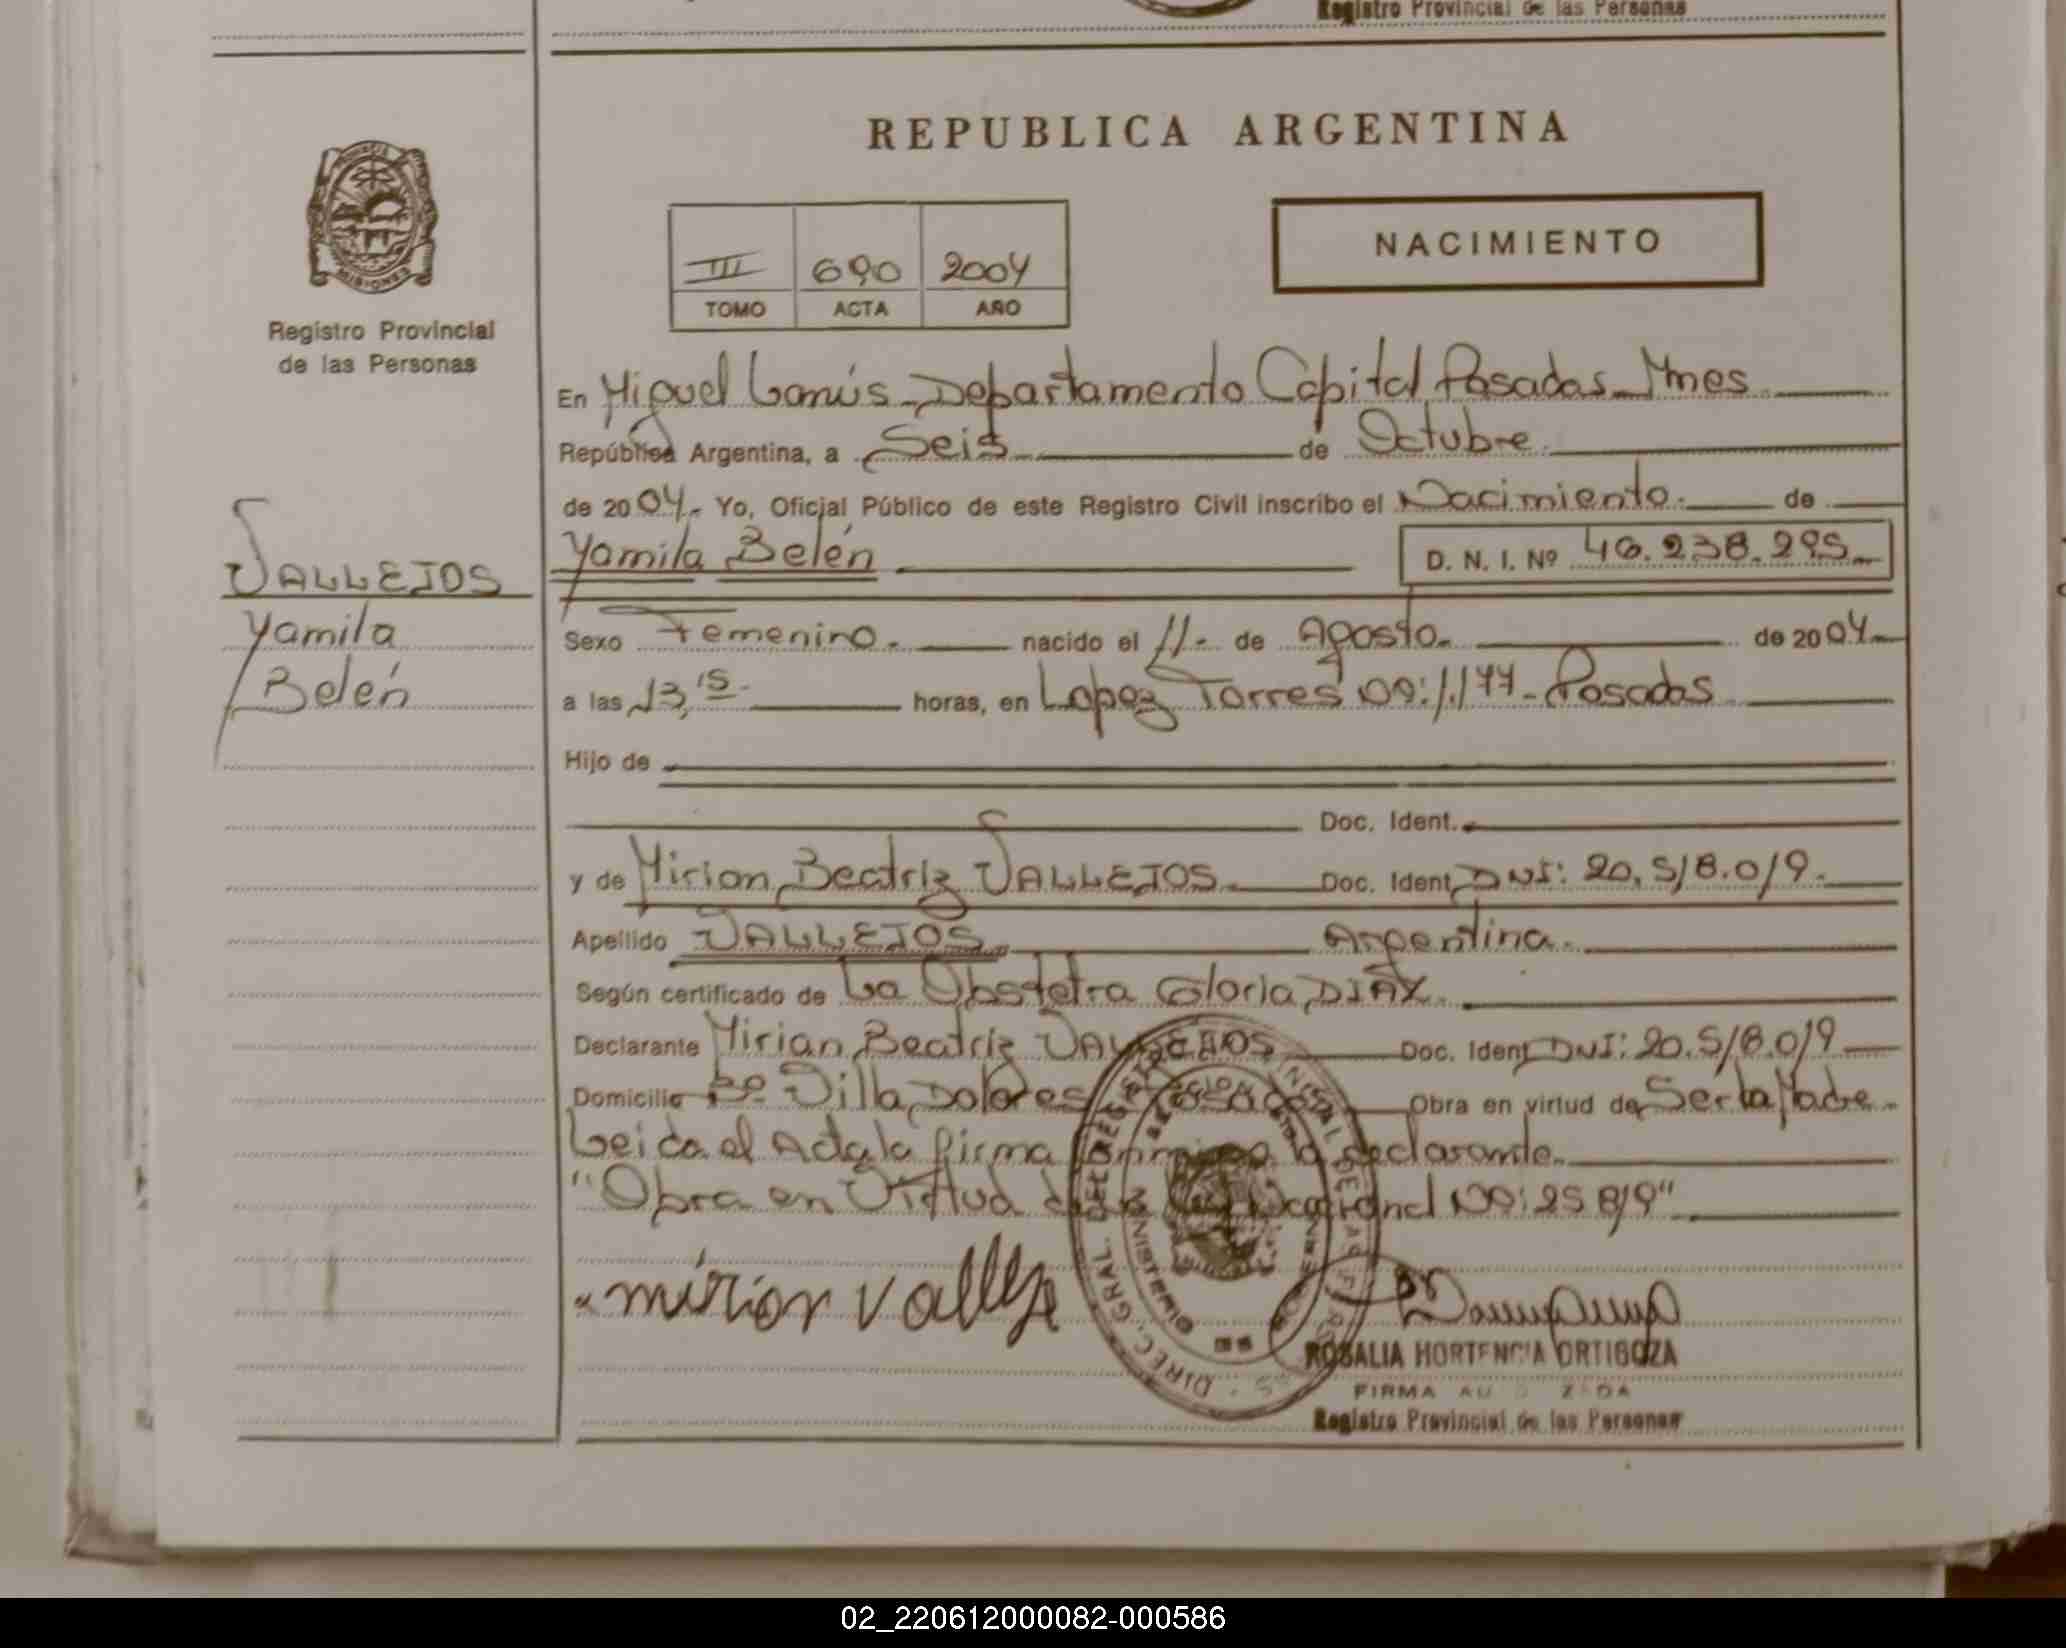 Registro Provincial de las Personas
REPUBLICA ARGENTINA
NACIMIENTO
III 690 2004
TOMO ACTA AÑO
Registro Provincial
de las Personas
VALLEJOS
Yamila
Belén
En Miguel Lanús - Departamento Capital Posadas Mnes
República Argentina, a Seis de Octubre.
de 2004. Yo, Oficial Público de este Registro Civil inscribo el Nacimiento. de
Yamila Belén D. N. I. Nº 46.238.295
Sexo Femenino. nacido el 11- de Agosto. de 2004
a las 13,15 horas, en Lopez Torres Nº: 1.177 - Posadas
Hijo de
Doc. Ident.
y de Mirian Beatriz VALLEJOS Doc. Ident. DNI: 20.518.019.
Apellido VALLEJOS Argentina.
Según certificado de La Obstetra Gloria DIAZ.
Declarante Mirian Beatriz VALLEJOS Doc. Ident DNI: 20.518.019
Domicilio Bº Villa Dolores Posadas Obra en virtud de Ser la Madre.
Leida el Acta la firma conmigo la declarante.
"Obra en Virtud de la Ley Nacional Nº: 25819"
mirian Valleja
ROSALIA HORTENCIA ORTIGOZA
FIRMA AUTORIZADA
Registro Provincial de las Personas
02_220612000082-000586